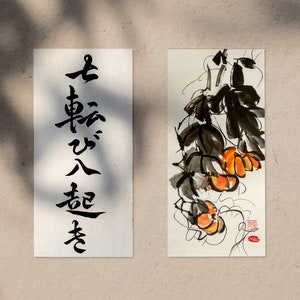 七転び八起き